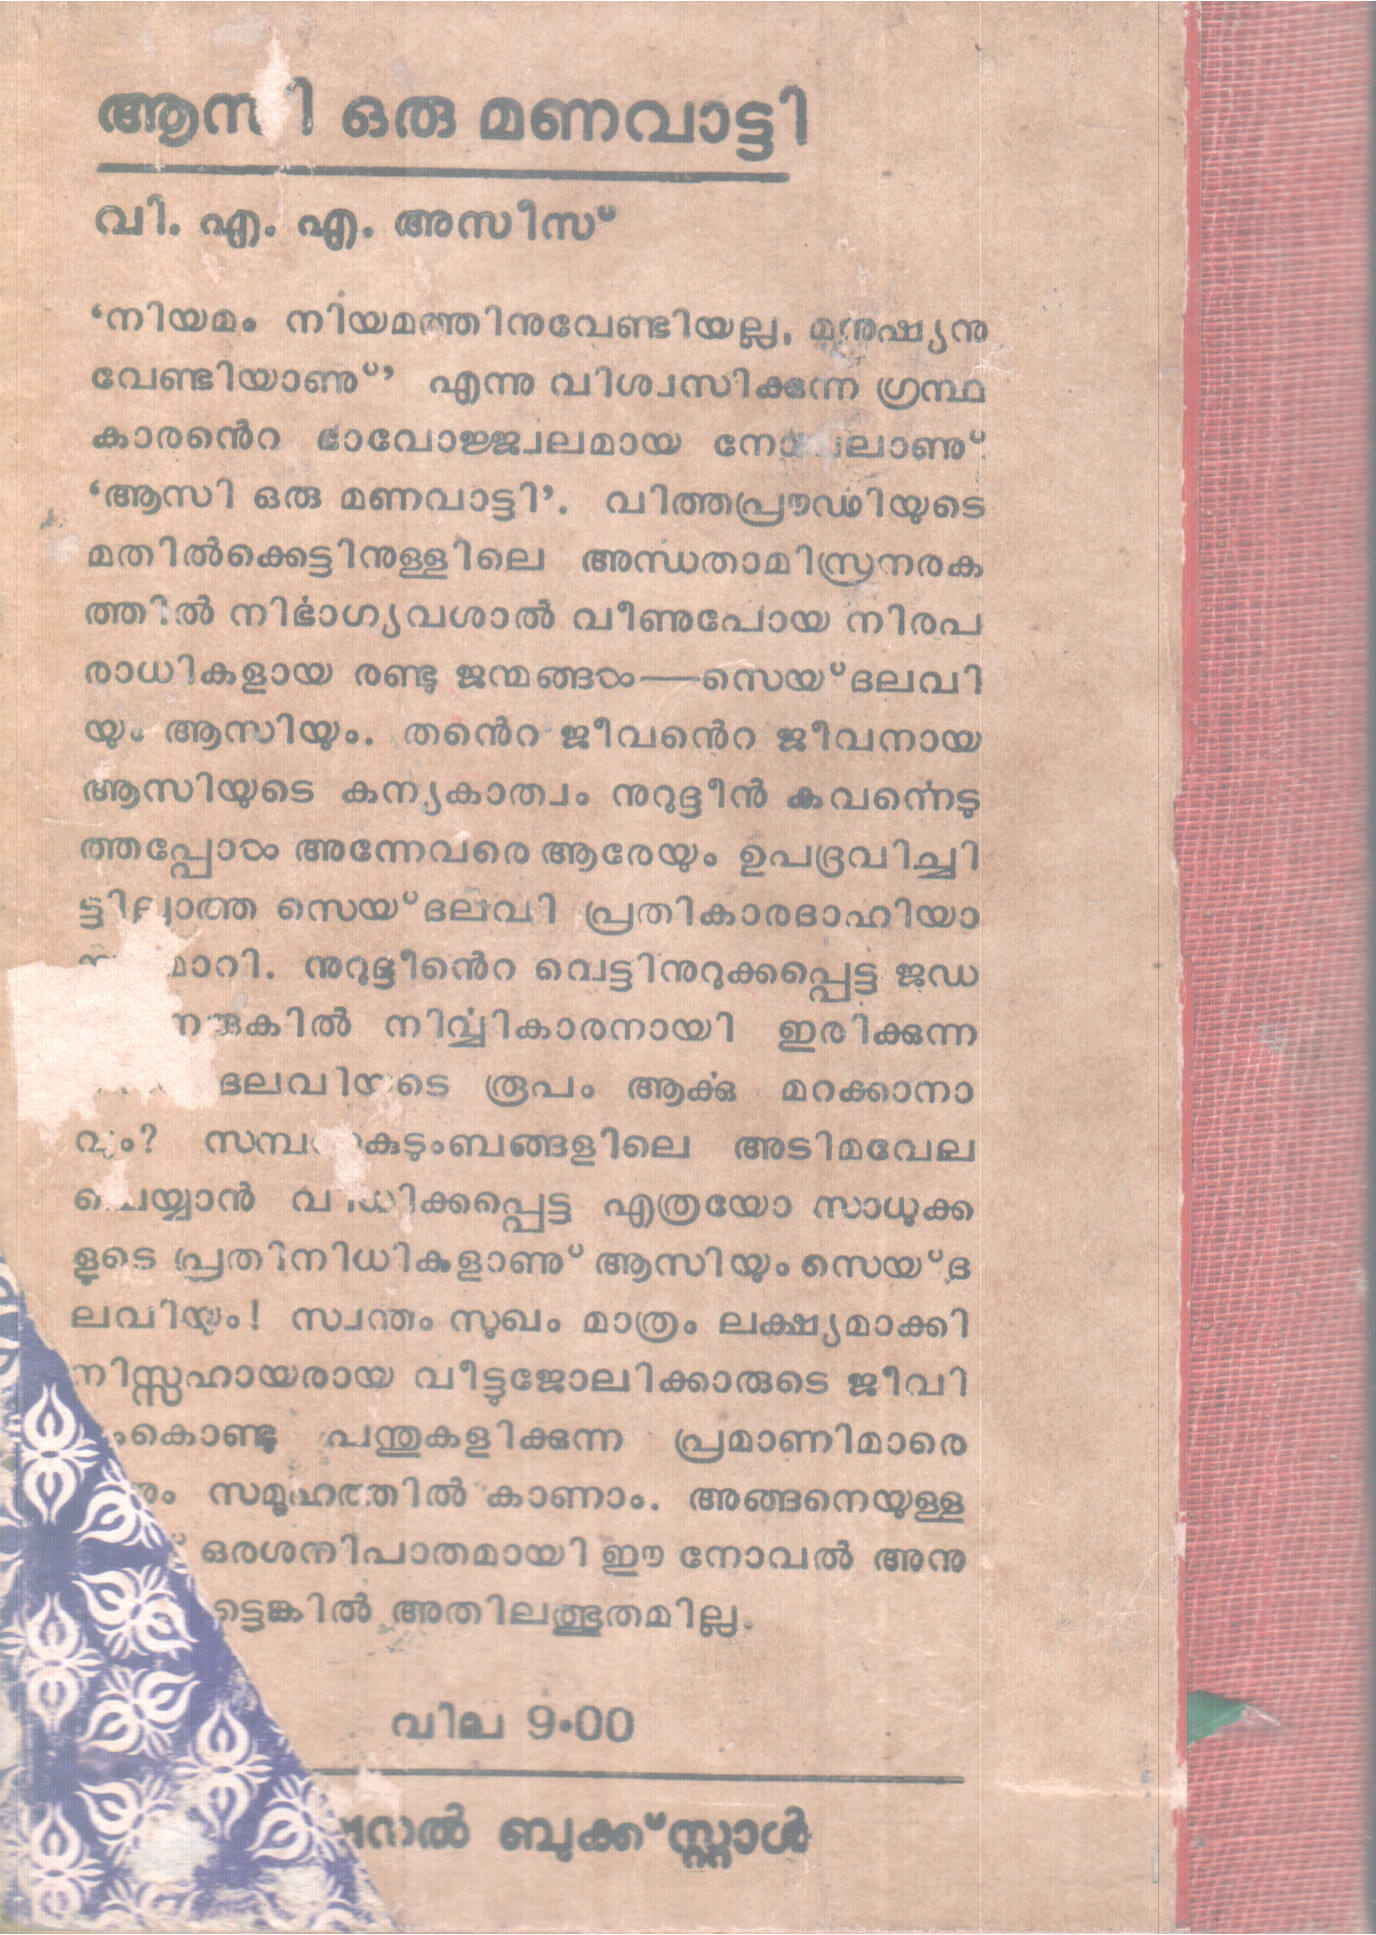 ആസി ഒരു മണവാട്ടി
വി. എ. എ. അസീസ്
‘നിയമം നിയമത്തിനുവേണ്ടിയല്ല, മനുഷ്യനു
വേണ്ടിയാണു്’ എന്നു വിശ്വസിക്കുന്ന ഗ്രന്ഥ
കാരന്റെ ഭാവോജ്ജ്വലമായ നോവലാണു്
‘ആസി ഒരു മണവാട്ടി’. വിത്തപ്രൗഢിയുടെ
മതിൽക്കെട്ടിനുള്ളിലെ അന്ധതാമിസ്രനരക
ത്തിൽ നിർഭാഗ്യവശാൽ വീണുപോയ നിരപ
രാധികളായ രണ്ടു ജന്മങ്ങൾ—സെയ്ദലവി
യും ആസിയും. തന്റെ ജീവന്റെ ജീവനായ
ആസിയുടെ കന്യകാത്വം നുറുദ്ദീൻ കവർന്നെടു
ത്തപ്പോൾ അന്നേവരെ ആരേയും ഉപദ്രവിച്ചി
ട്ടില്ലാത്ത സെയ്ദലവി പ്രതികാരദാഹിയാ
മാറി. നുറുദ്ദീന്റെ വെട്ടിനുറുക്കപ്പെട്ട ജഡ
നിർവ്വികാരനായി ഇരിക്കുന്ന
ദലവിയുടെ രൂപം ആർക്കു മറക്കാനാ
വും? സമ്പന്നകുടുംബങ്ങളിലെ അടിമവേല
ചെയ്യാൻ വിധിക്കപ്പെട്ട എത്രയോ സാധുക്ക
ളുടെ പ്രതിനിധികളാണു് ആസിയും സെയ്ദ
ലവിയും! സ്വന്തം സുഖം മാത്രം ലക്ഷ്യമാക്കി
നിസ്സഹായരായ വീട്ടുജോലിക്കാരുടെ ജീവി
കൊണ്ടു പന്തുകളിക്കുന്ന പ്രമാണിമാരെ
സമൂഹത്തിൽ കാണാം. അങ്ങനെയുള്ള
ഒരശനിപാതമായി ഈ നോവൽ അനു
ട്ടെങ്കിൽ അതിലത്ഭുതമില്ല.
വില 9·00
ബുക്ക്സ്റ്റാൾ